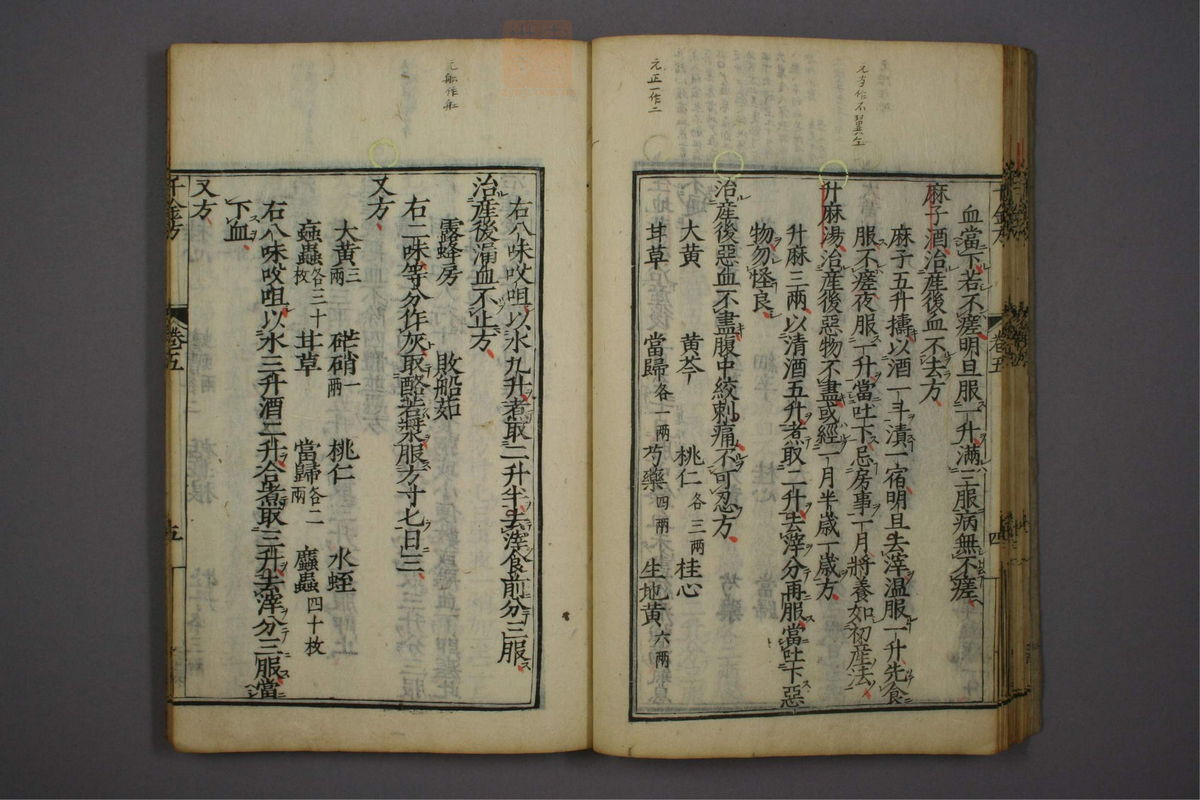 元方作不翼仝
元正一作二
血當下若不瘥明旦服一升滿三服病無不瘥
麻子酒治産後血不去方
麻子五升擣以酒一斗漬一宿明旦去滓温服一升先食
服不瘥夜服一升當吐下忌房事一月將養如初産法
升麻湯治産後惡物不盡或經一月半歲一歲方
升麻三兩以清酒五升煮取二升去滓分再服當吐下惡
物勿怪良
治産後惡血不盡腹中絞刺痛不可忍方
大黄 黄芩 桃仁各三兩 桂心
甘草 當歸各一兩 芍藥四兩 生地黄六兩
卷五
四
元船作舩
右八味㕮咀以水九升煮取二升半去滓食前分三服
治産後漏血不止方
露蜂房 敗船茹
右二味等分作灰取酪若漿服方寸匕日三
又方
大黄三兩 芒硝一兩 桃仁 水蛭
䖟蟲各三十枚 甘草 當歸各二兩 䗪蟲四十枚
右八味㕮咀以水三升酒二升合煮取三升去滓分三服當
下血
又方
千金方
卷五
五